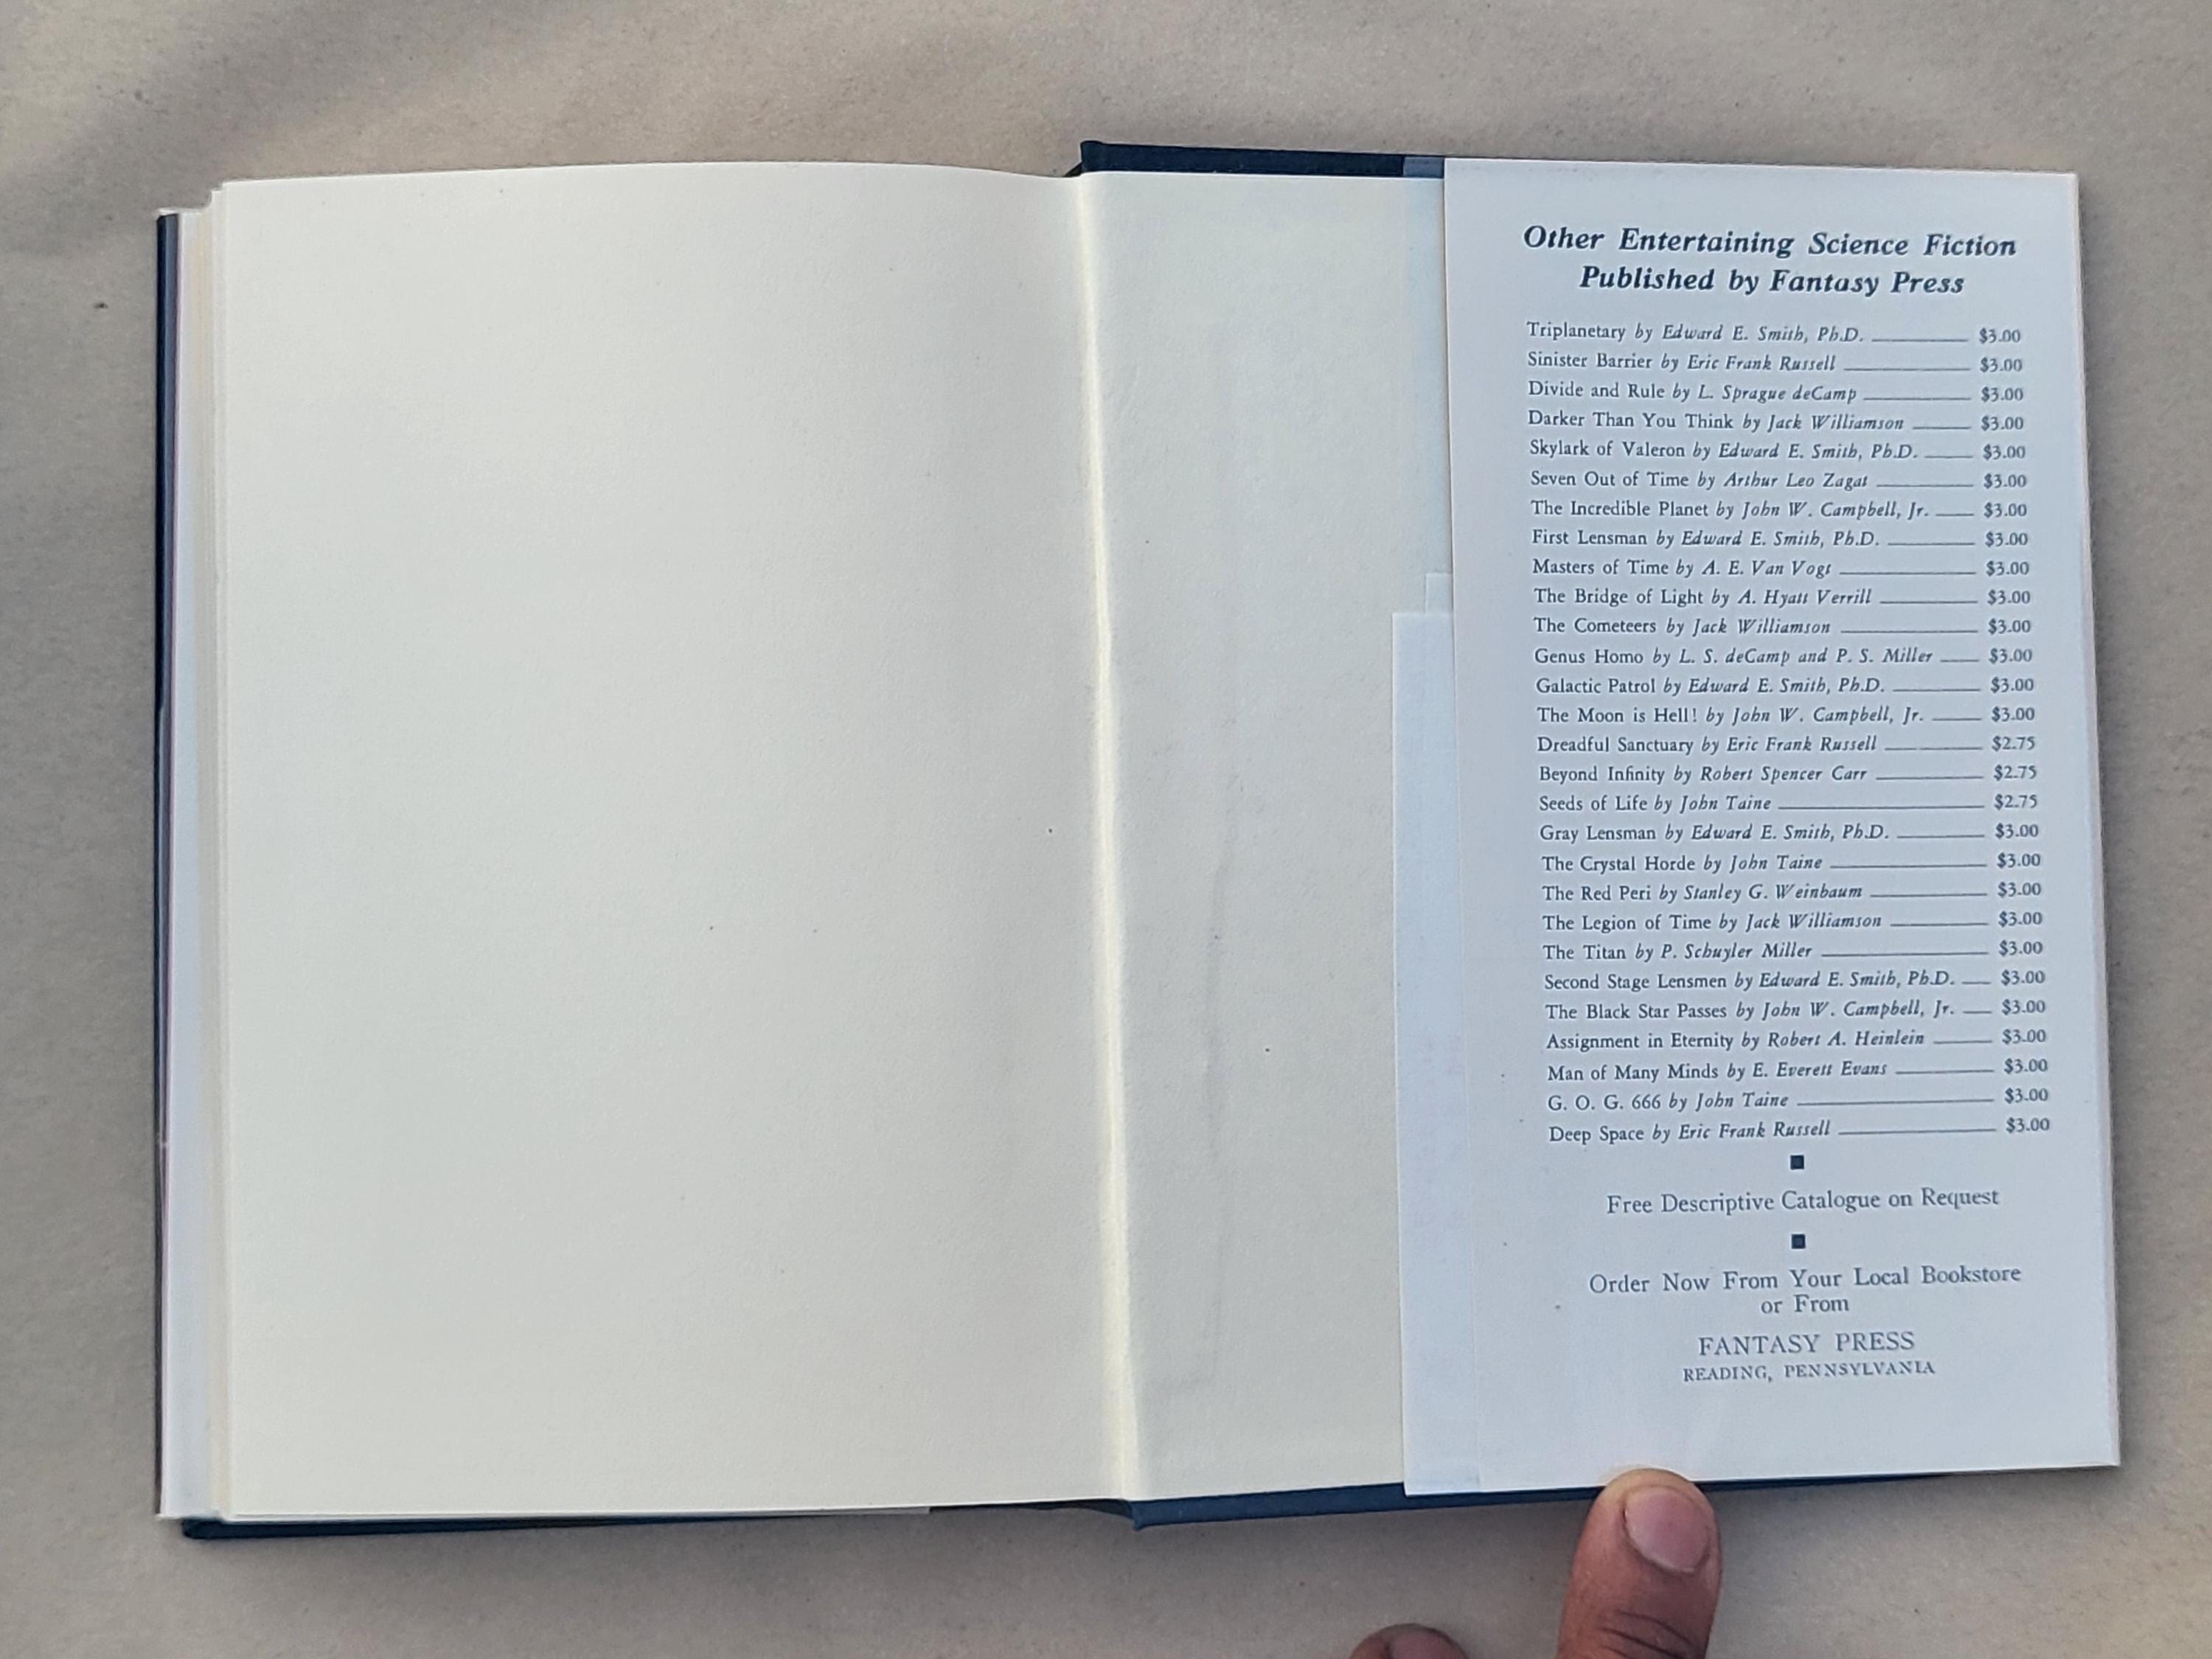 Other Entertaining Science Fiction
Published by Fantasy Press
Triplanetary by Edward E. Smith, Ph.D. $3.00
Sinister Barrier by Eric Frank Russell $3.00
Divide and Rule by L. Sprague deCamp $3.00
Darker Than You Think by Jack Williamson $3.00
Skylark of Valeron by Edward E. Smith, Ph.D. $3.00
Seven Out of Time by Arthur Leo Zagat $3.00
The Incredible Planet by John W. Campbell, Jr. $3.00
First Lensman by Edward E. Smith, Ph.D. $3.00
Masters of Time by A. E. Van Vogt $3.00
The Bridge of Light by A. Hyatt Verrill $3.00
The Cometeers by Jack Williamson $3.00
Genus Homo by L. S. deCamp and P. S. Miller $3.00
Galactic Patrol by Edward E. Smith, Ph.D. $3.00
The Moon is Hell! by John W. Campbell, Jr. $3.00
Dreadful Sanctuary by Eric Frank Russell $2.75
Beyond Infinity by Robert Spencer Carr $2.75
Seeds of Life by John Taine $2.75
Gray Lensman by Edward E. Smith, Ph.D. $3.00
The Crystal Horde by John Taine $3.00
The Red Peri by Stanley G. Weinbaum $3.00
The Legion of Time by Jack Williamson $3.00
The Titan by P. Schuyler Miller $3.00
Second Stage Lensmen by Edward E. Smith, Ph.D. $3.00
The Black Star Passes by John W. Campbell, Jr. $3.00
Assignment in Eternity by Robert A. Heinlein $3.00
Man of Many Minds by E. Everett Evans $3.00
G. O. G. 666 by John Taine $3.00
Deep Space by Eric Frank Russell $3.00
Free Descriptive Catalogue on Request
Order Now From Your Local Bookstore
or From
FANTASY PRESS
READING, PENNSYLVANIA